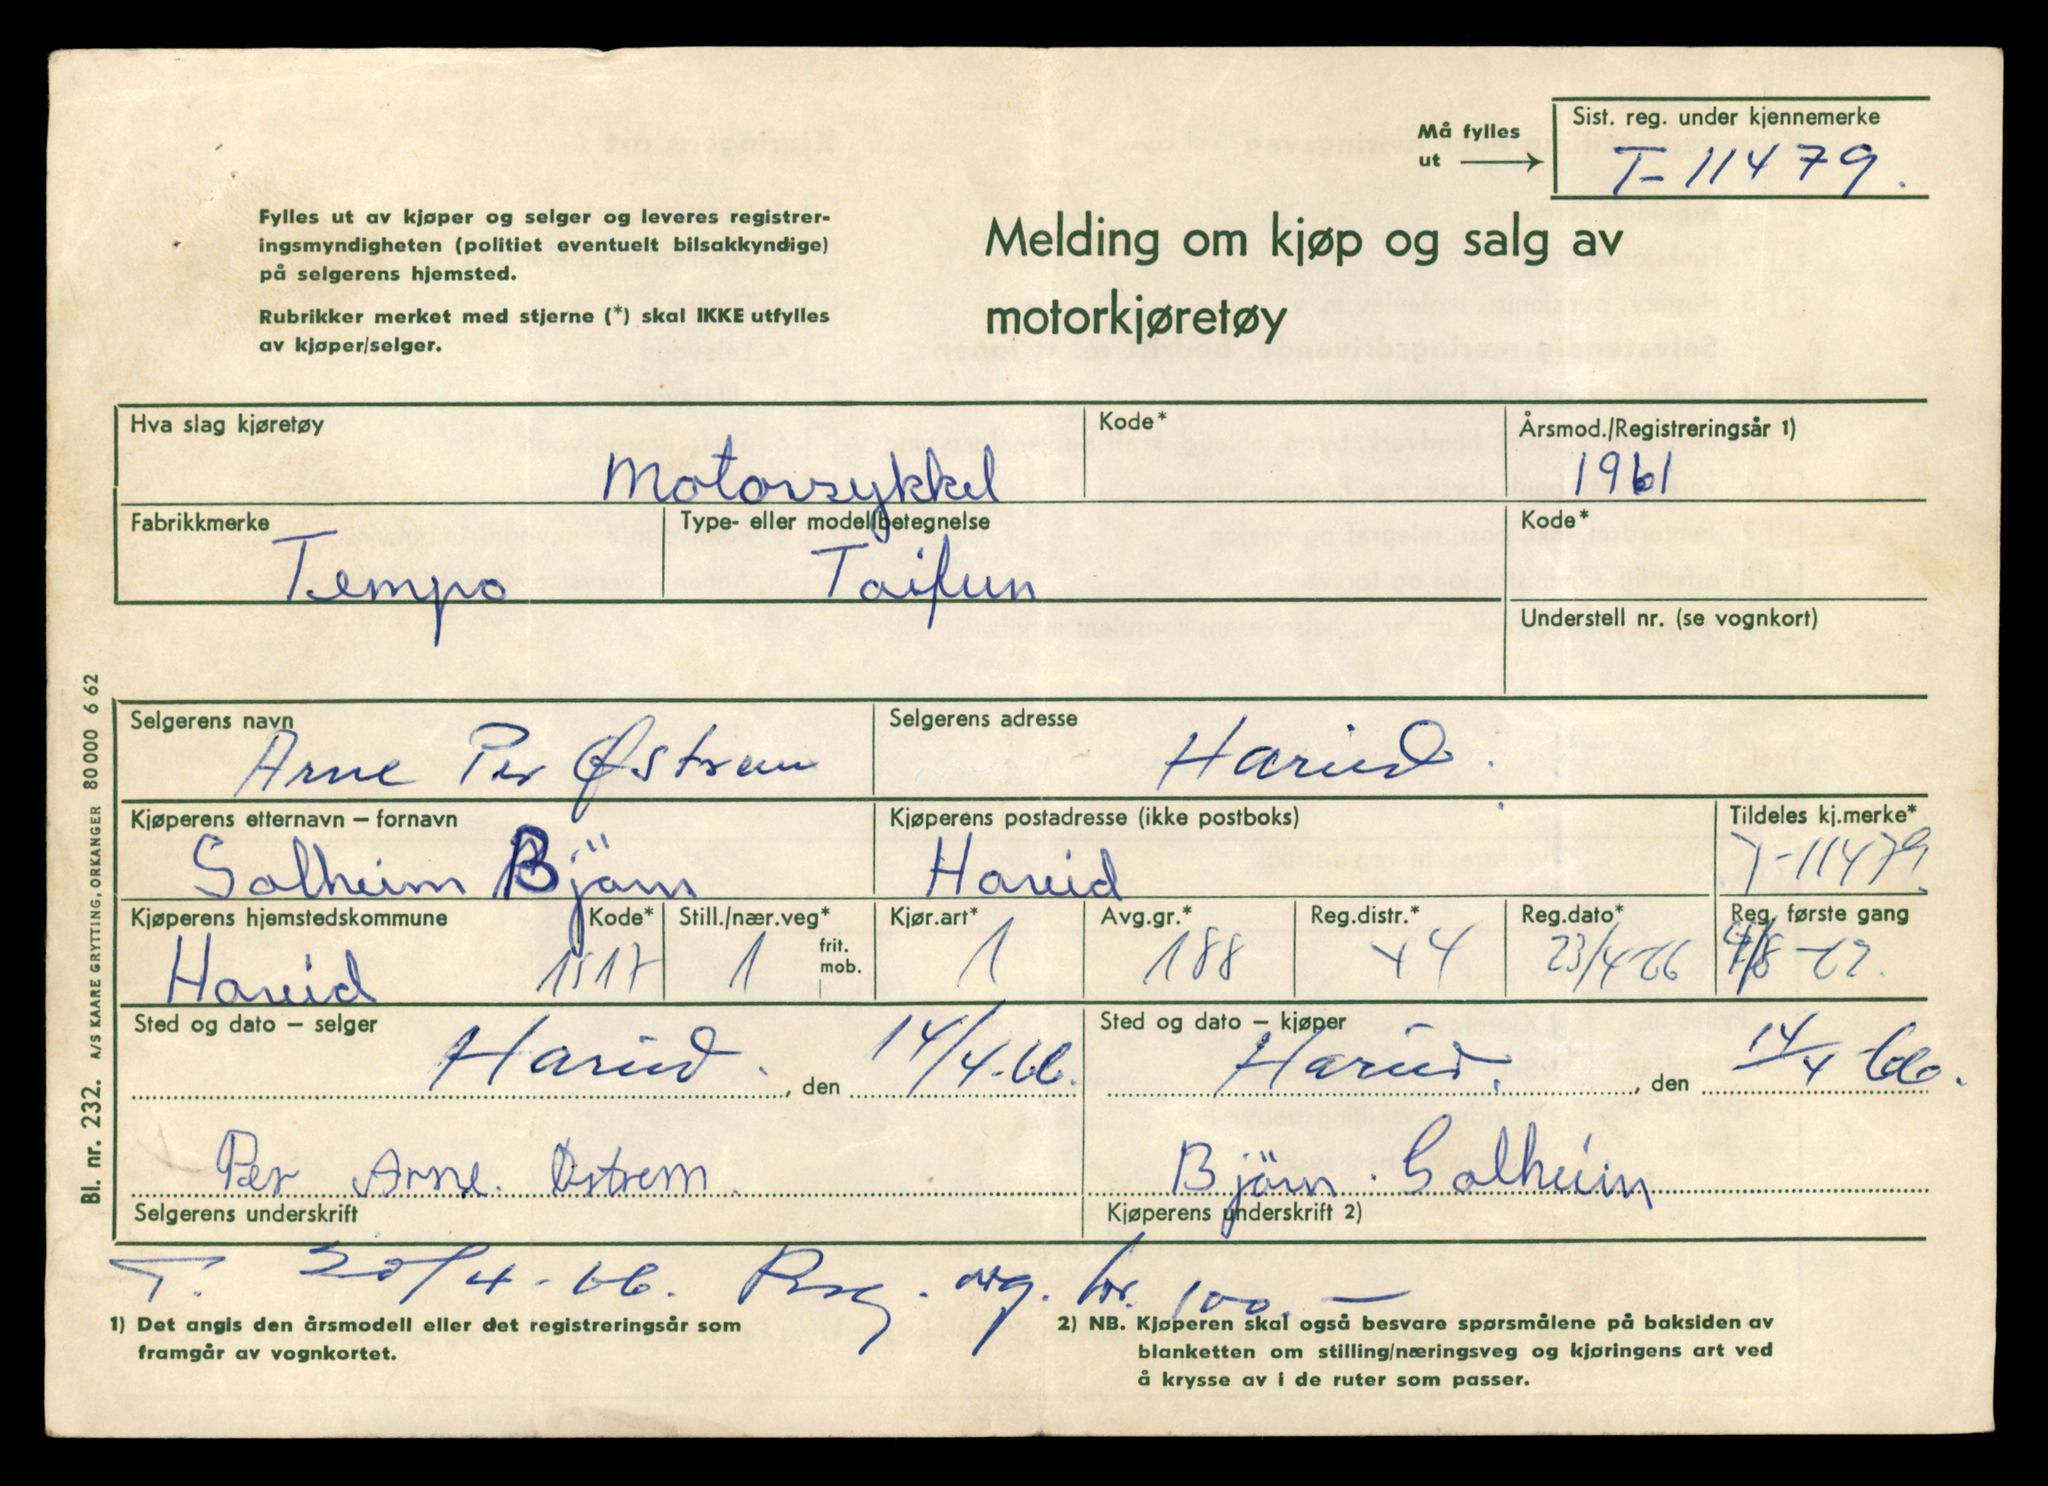 Sist. reg. under kjennemerke
Må fylles
ut
T-11479.
Fylles ut av kjøper og selger og leveres registrer-
ingsmyndigheten (politiet eventuelt bilsakkyndige)
på selgerens hjemsted.
Rubrikker merket med stjerne (*) skal IKKE utfylles
av kjøper/selger.
Melding om kjøp og salg av
motorkjøretøy
Hva slag kjøretøy
Kode*
Årsmod./Registreringsår 1)
Motorsykkel
1961
Fabrikkmerke
Type- eller modellbetegnelse
Kode*
Tempo
Taifun
Understell nr. (se vognkort)
Selgerens navn
Selgerens adresse
Arne Per Østrem
Hareid.
Kjøperens etternavn – fornavn
Kjøperens postadresse (ikke postboks)
Tildeles kj.merke*
Solheim Björn
Hareid
T-11479.
Kjøperens hjemstedskommune
Kode*
Still./nær.veg*
Kjør.art*
Avg.gr.*
Reg.distr.*
Reg.dato*
Reg. første gang
Hareid
1517
1
frit.
mob.
1
188
44
23/4-66
/8-62.
Sted og dato – selger
Sted og dato – kjøper
Hareid. , den 14/4-66.
Hareid. , den 14/4-66.
Per Arne. Østrem.
Björn. Solheim
Selgerens underskrift
Kjøperens underskrift 2)
T. 20/4-66. Reg. avg. kr. 100.—
1) Det angis den årsmodell eller det registreringsår som
framgår av vognkortet.
2) NB. Kjøperen skal også besvare spørsmålene på baksiden av
blanketten om stilling/næringsveg og kjøringens art ved
å krysse av i de ruter som passer.
Bl. nr. 232. A/S KAARE GRYTTING, ORKANGER 80000 6 62